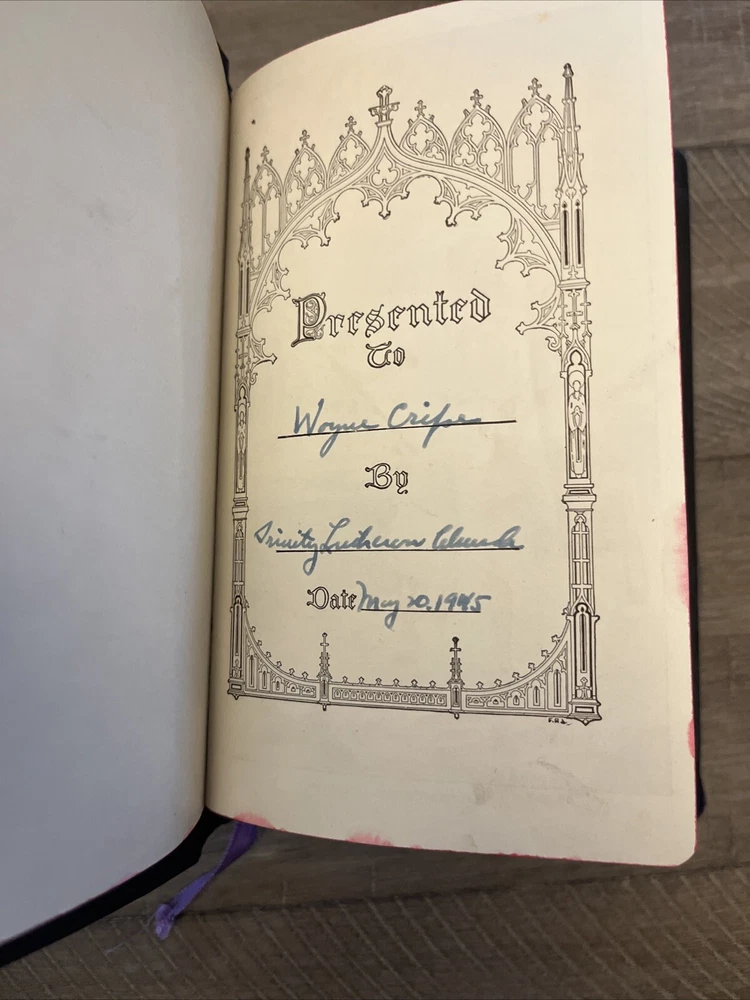 Presented
To
Wayne Cripe
By
Trinity Lutheran Church
Date May 20, 1945